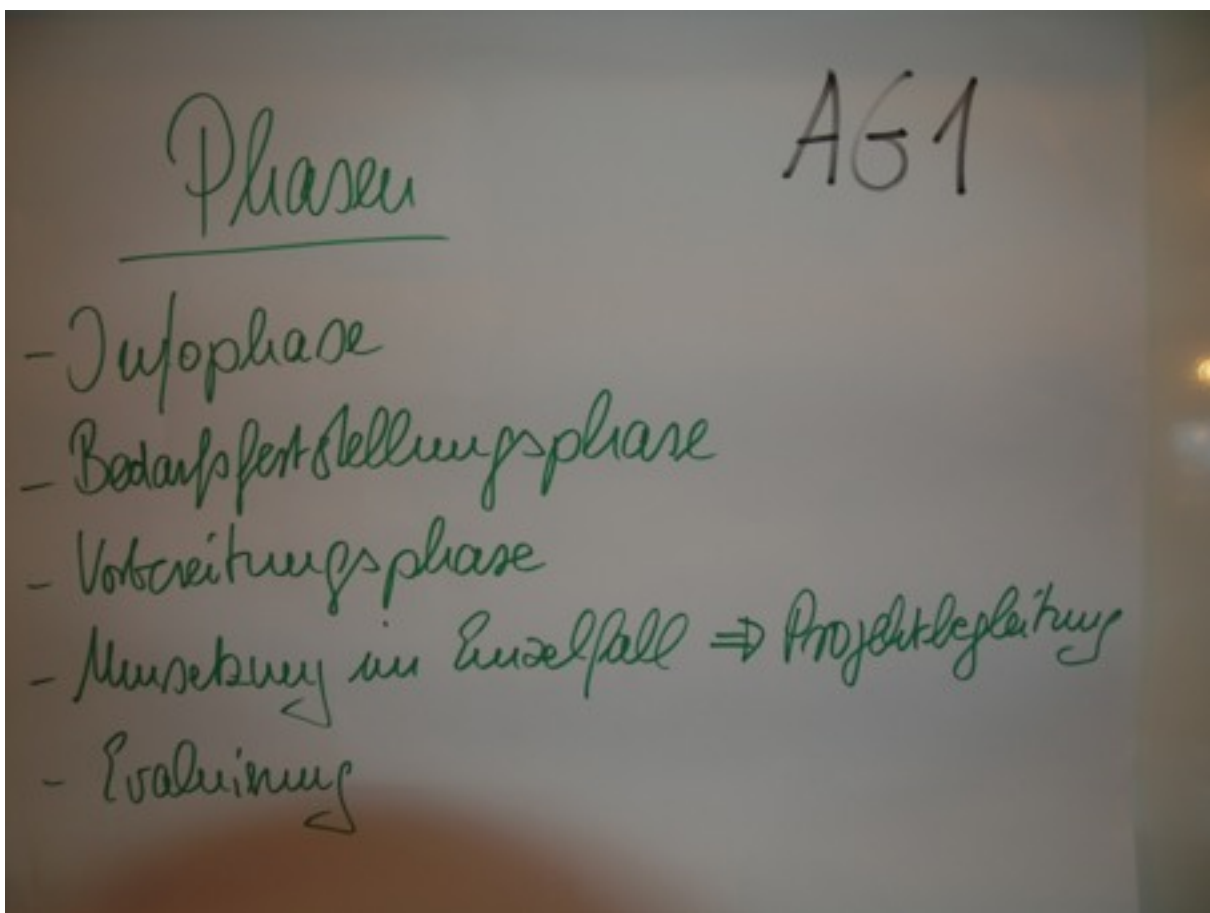 AG1
Phasen
- Infophase
- Bedarfsfeststellungsphase
- Vorbereitungsphase
- Umsetzung im Einzelfall ⇒ Projektbegleitung
- Evaluierung